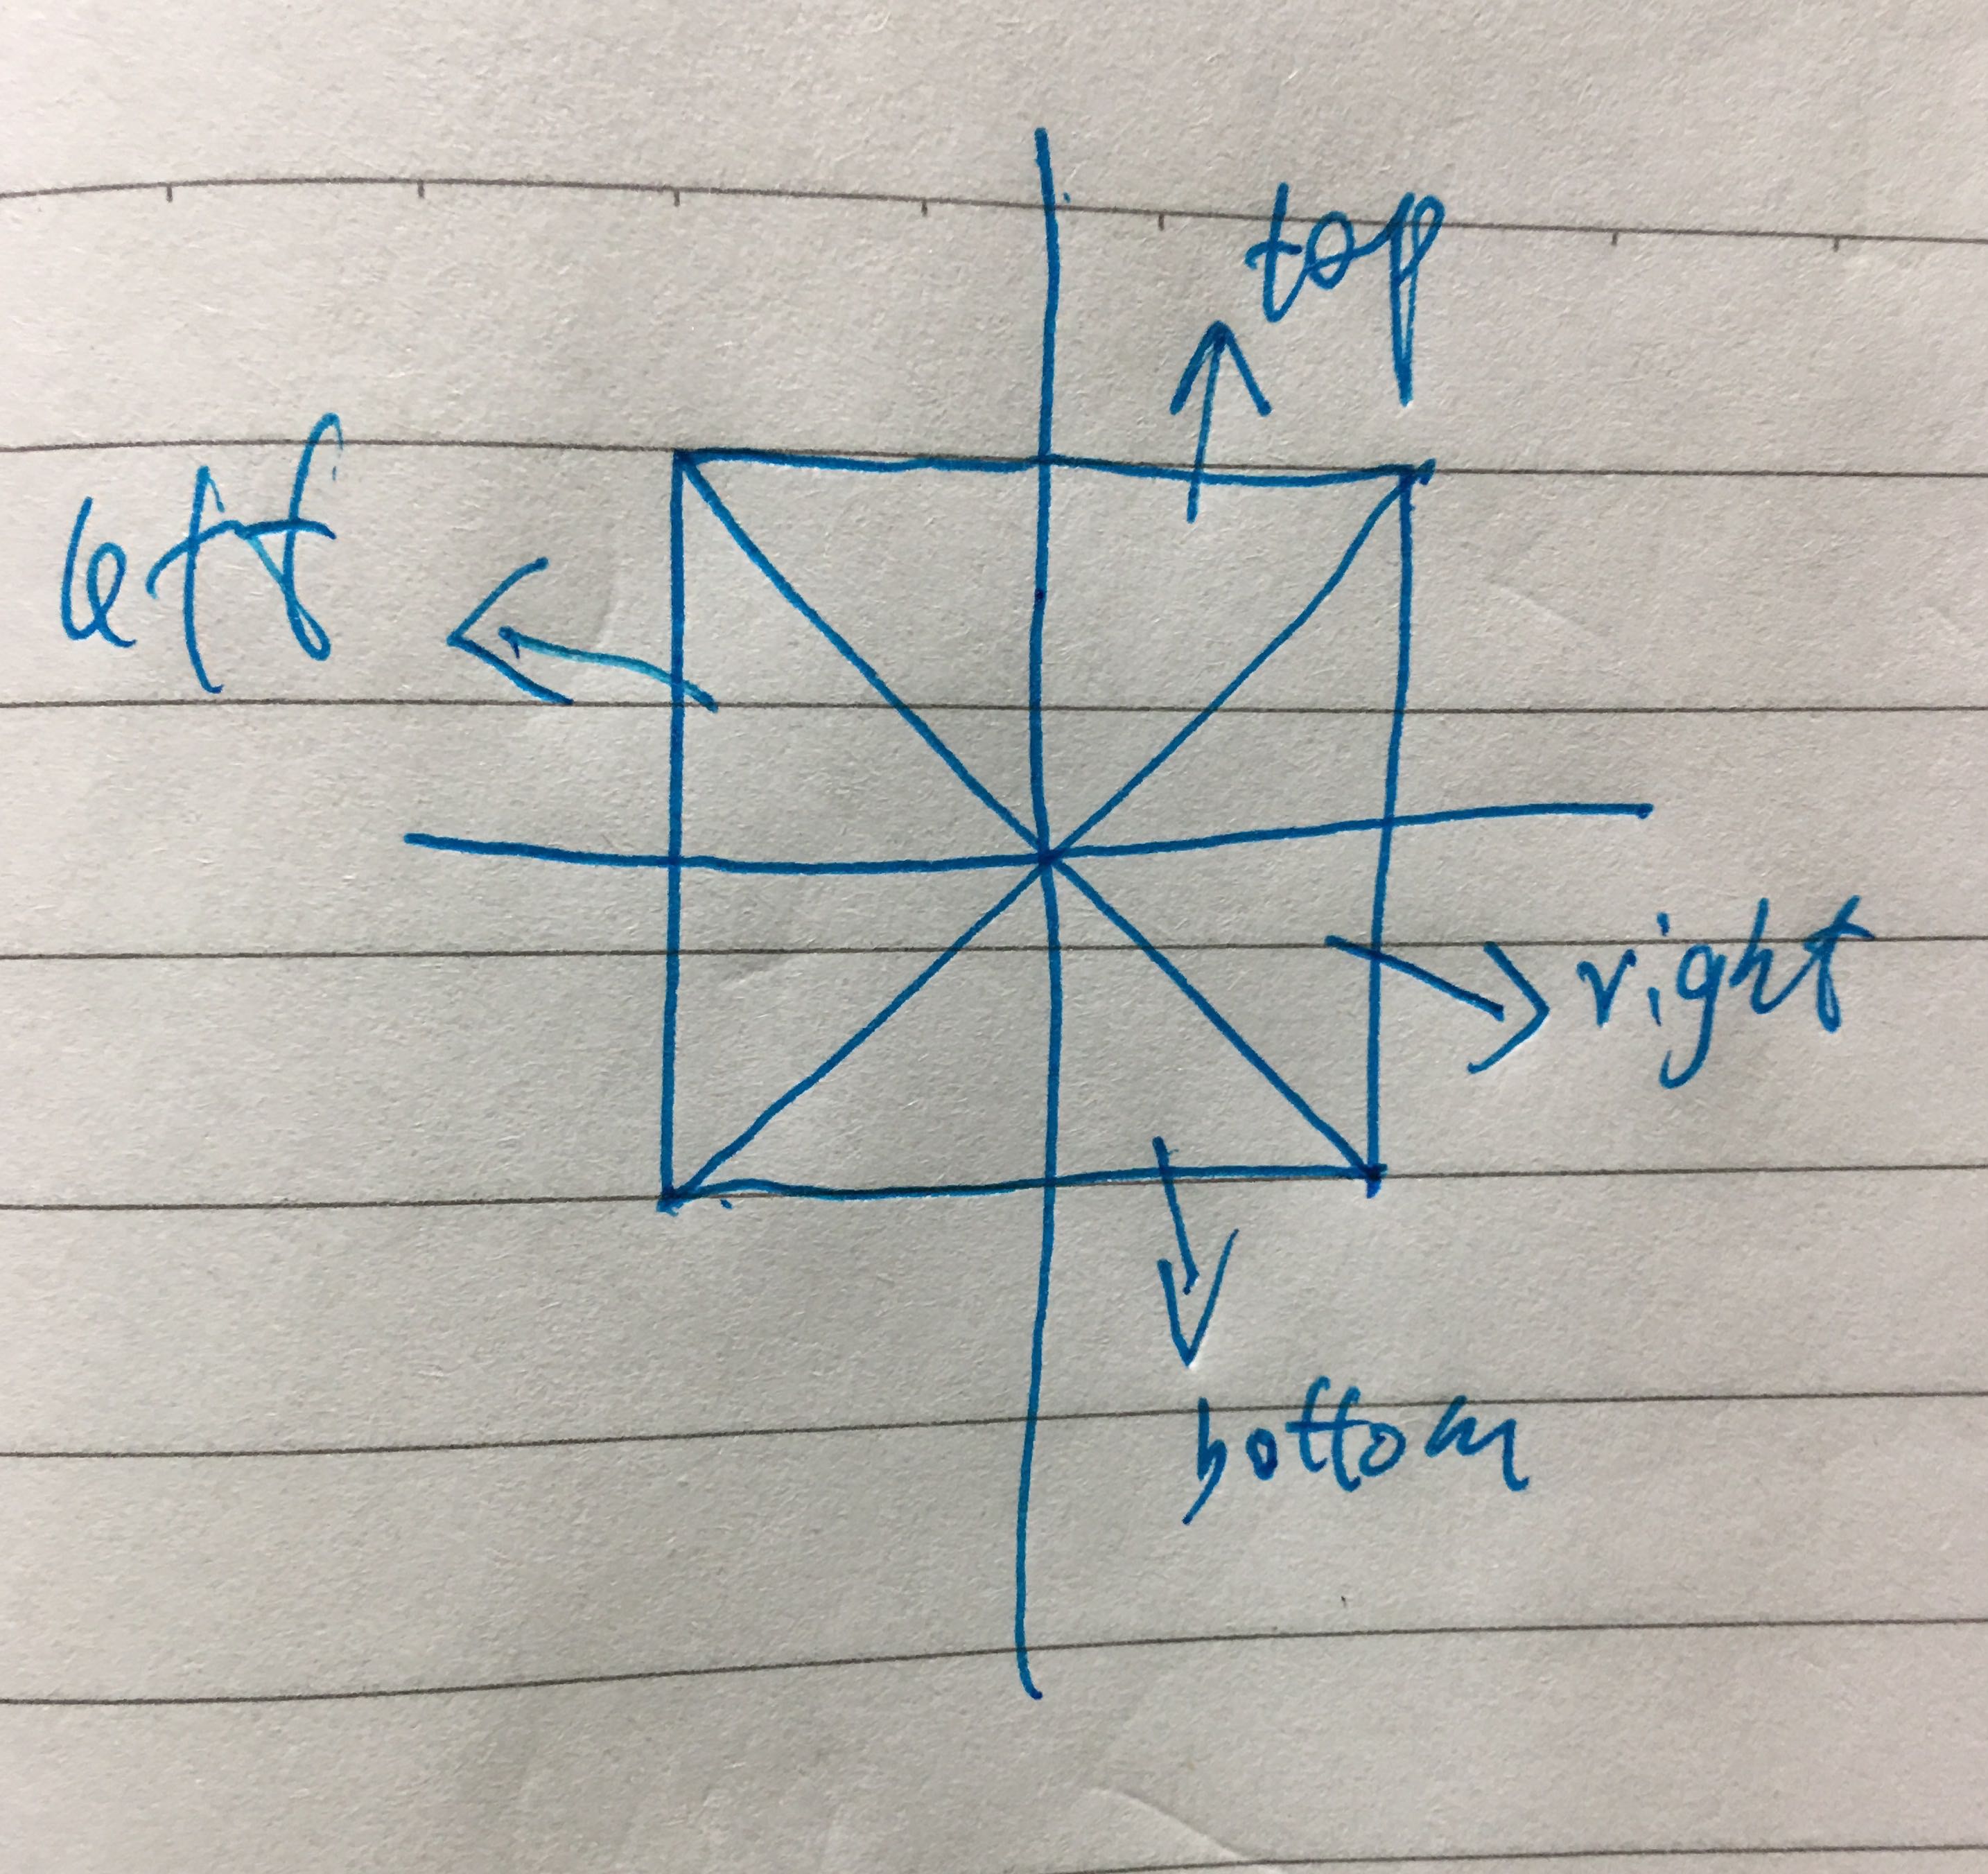 top
left
right
bottom